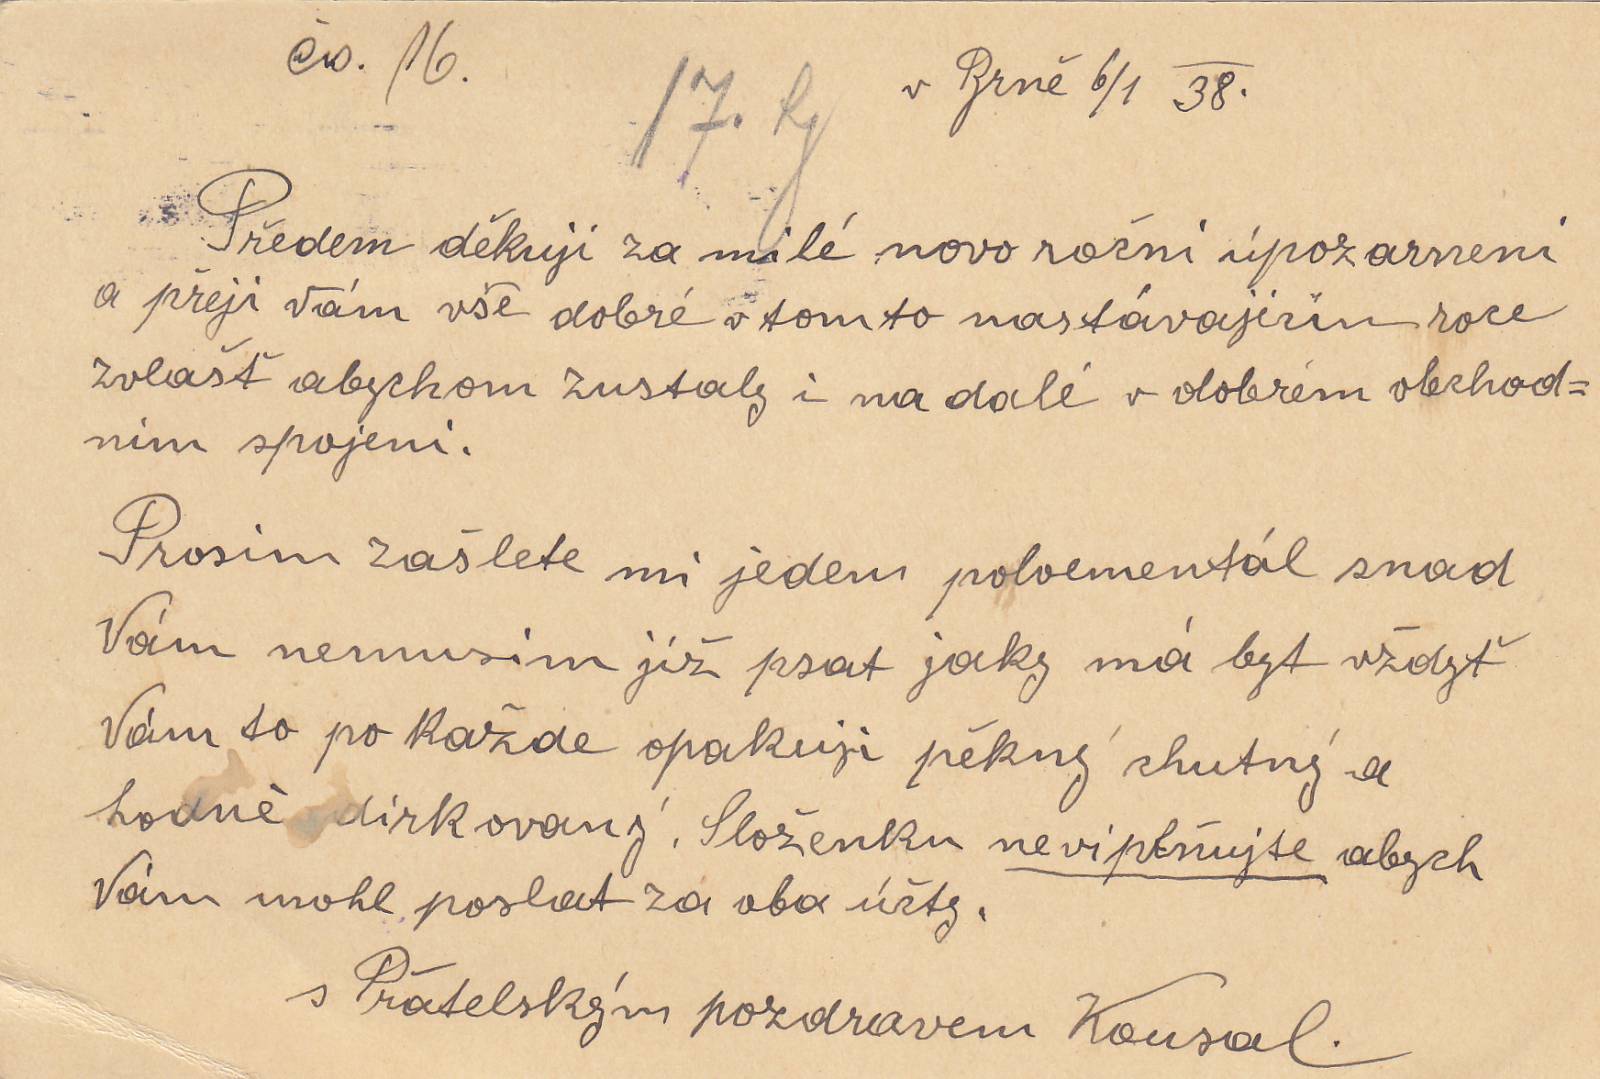 čís. 16.
17. kg
v Brně 6/1 38.
Předem děkuji za milé novo roční úpozarneni
a přeji Vám vše dobré v tomto nastávajícím roce
zvlašť abychom zustaly i na dalé v dobrém obchod=
nim spojeni.
Prosim zašlete mi jedem poloementál snad
Vám nemusim již psat jaky má byt vždyť
Vám to po každe opakuji pěkný chutný a
hodně dirkovaný. Složenku neviplňujte abych
Vám mohl poslat za oba účty.
s Přatelským pozdravem Kousal.